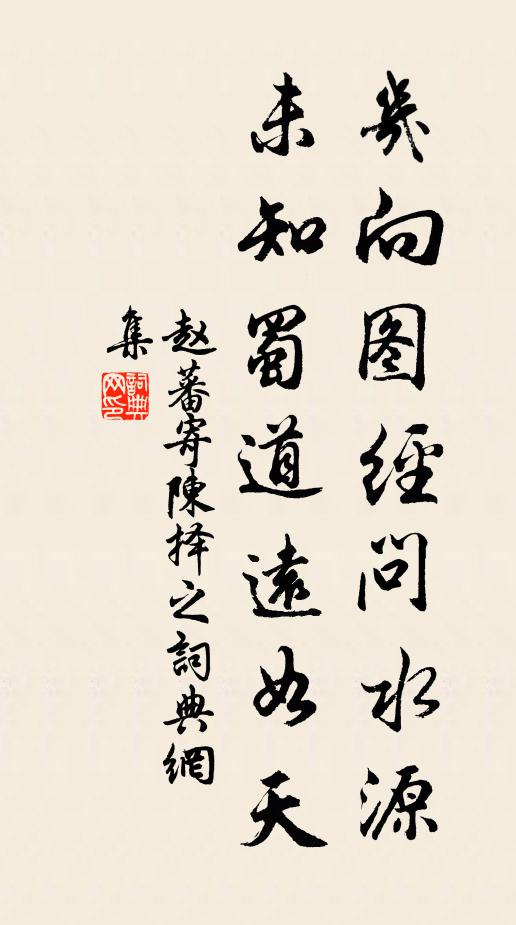 幾向图經问水源
未知蜀道遠如天
赵蕃寄陳择之詞典網
集
詞典
网印